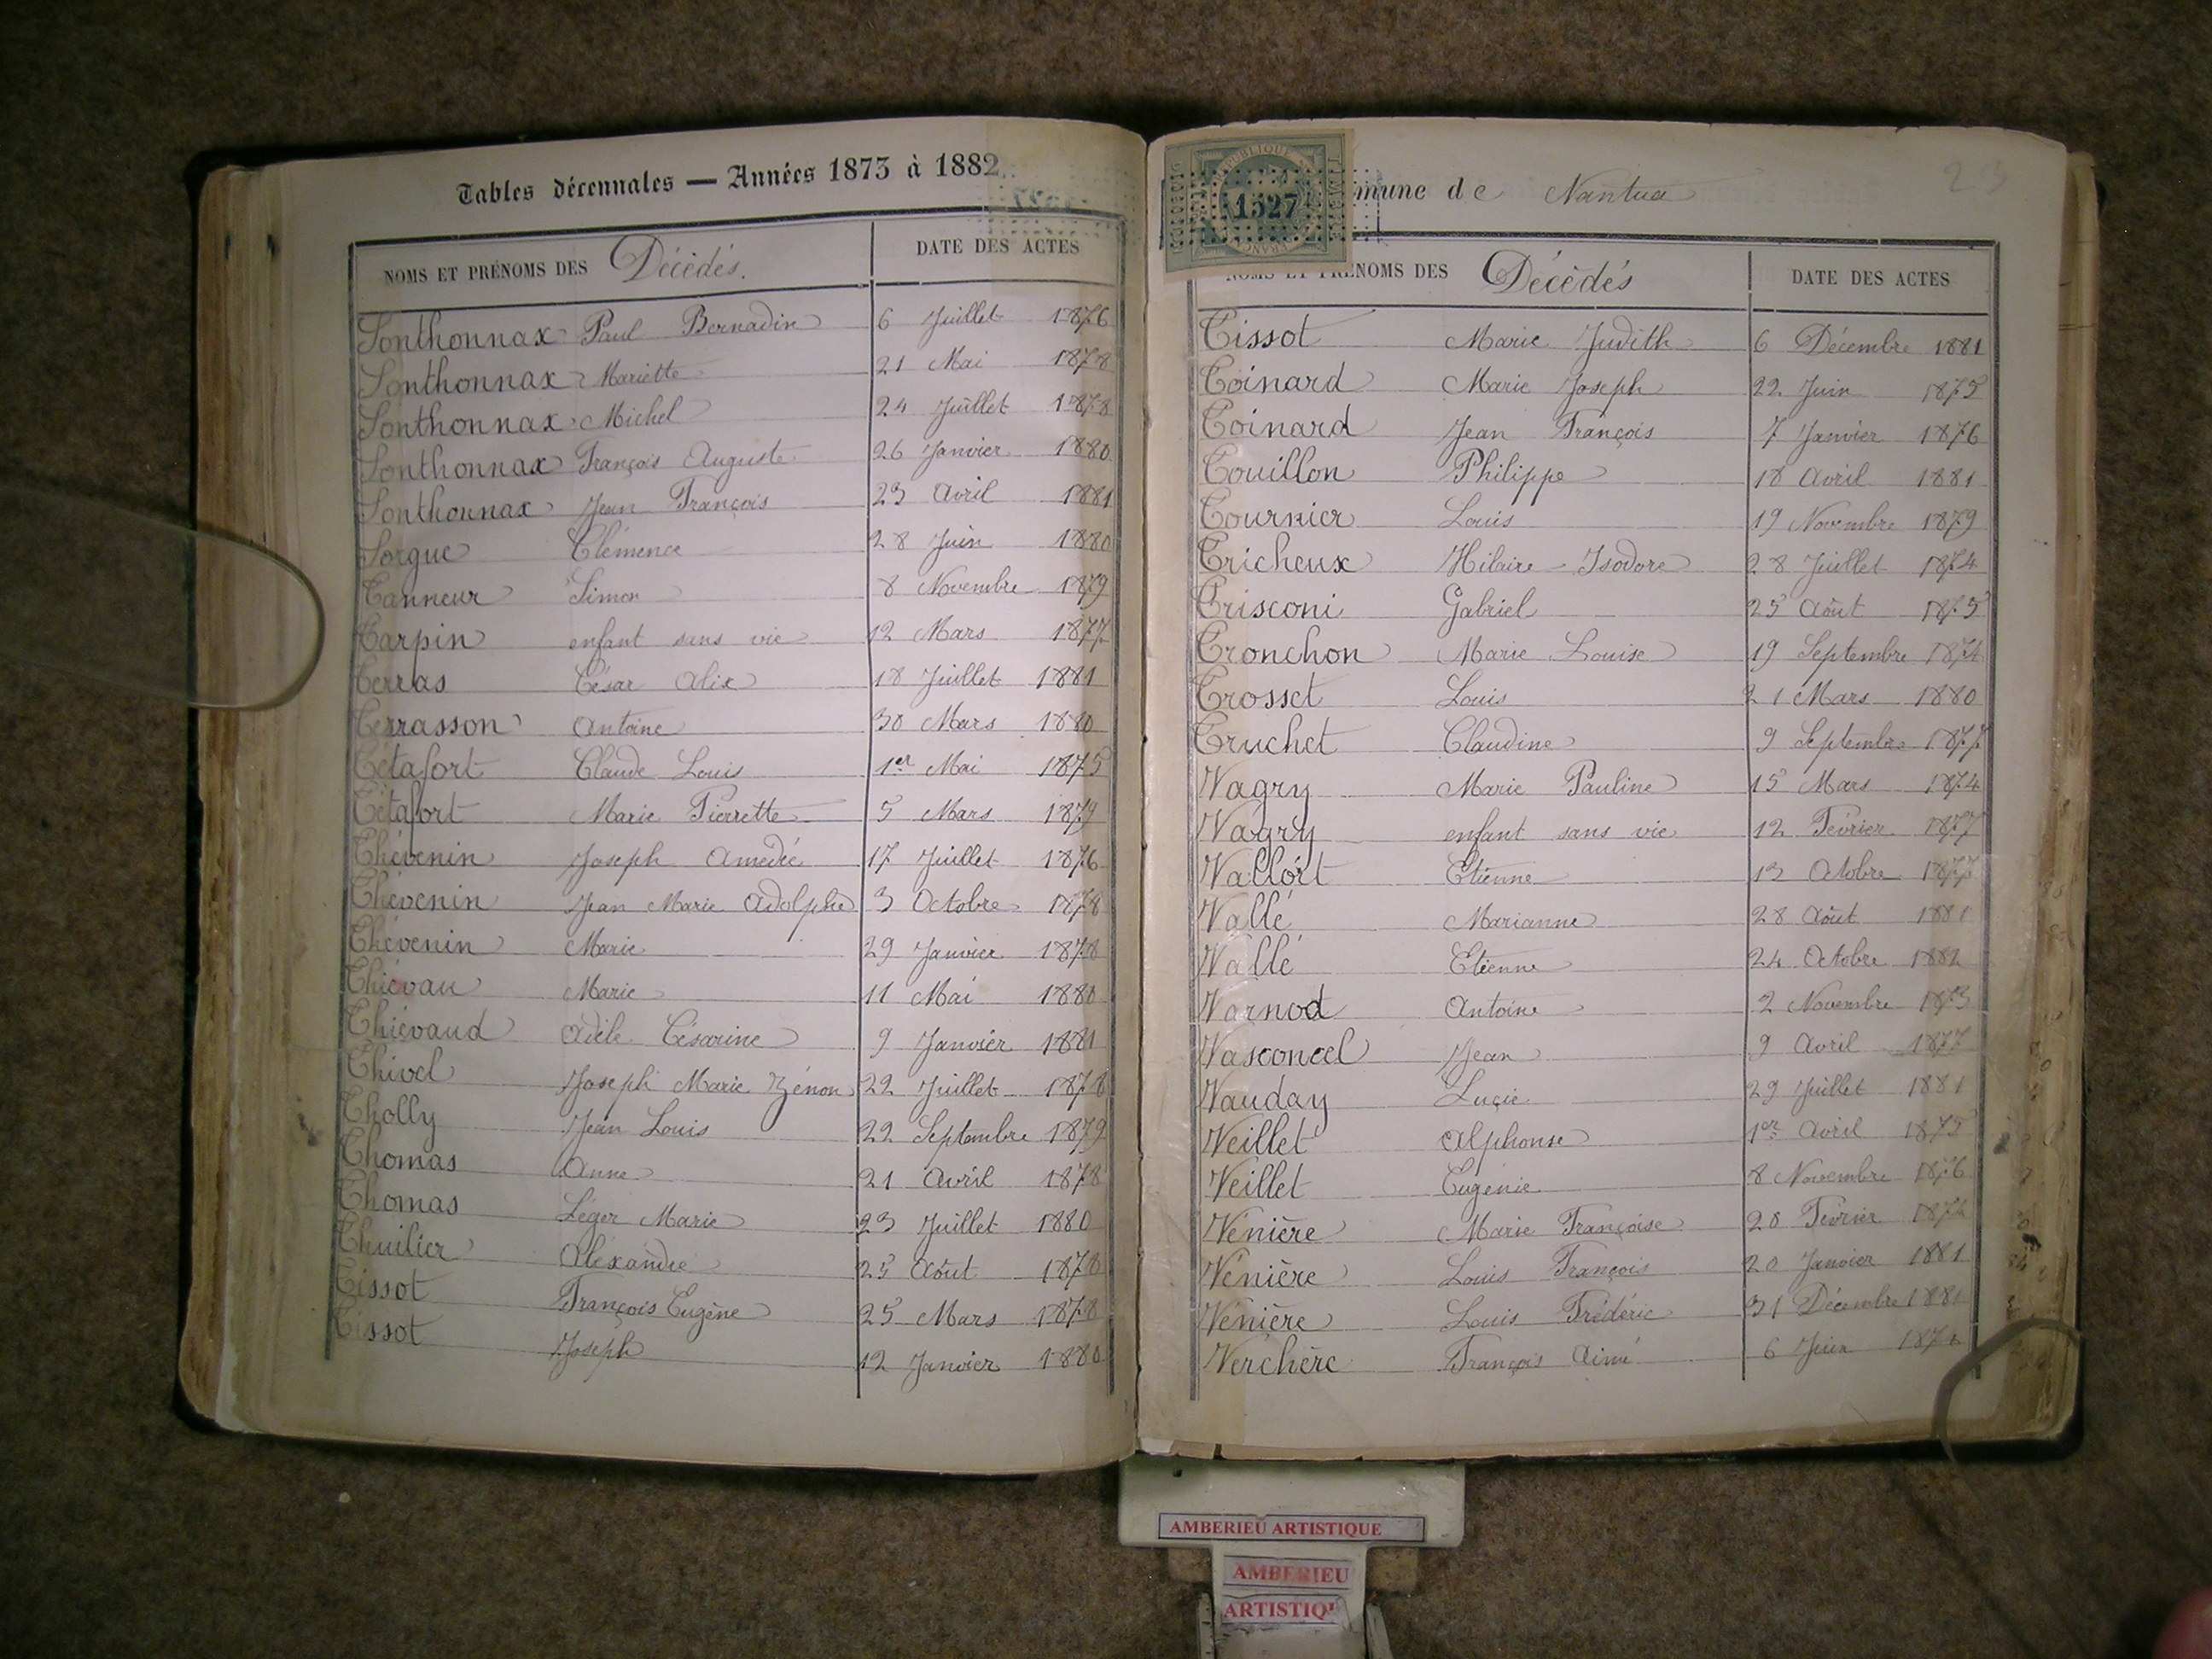 Tables décennales — Années 1873 à 1882
NOMS ET PRÉNOMS DES Décédés. DATE DES ACTES
Sonthonnax Paul Bernadin 6 Juillet 1876
Sonthonnax Mariette 21 Mai 1878
Sonthonnax Michel 24 Juillet 1878
Sonthonnax François Auguste 26 Janvier 1880
Sonthonnax Jean François 23 Avril 1881
Sorgue Clémence 28 Juin 1880
Tanneur Simon 8 Novembre 1879
Tarpin enfant sans vie 12 Mars 1877
Terras César Alix 18 Juillet 1881
Terrasson Antoine 30 Mars 1880
Tétafort Claude Louis 1er Mai 1875
Tétafort Marie Pierrette 5 Mars 1879
Thévenin Joseph Amedée 17 Juillet 1876
Thévenin Jean Marie Adolphe 3 Octobre 1878
Thévenin Marie 29 Janvier 1878
Thiévau Marie 11 Mai 1880
Thiévaud Adèle Césarine 9 Janvier 1881
Thivel Joseph Marie Zénon 22 Juillet 1878
Tholly Jean Louis 22 Septembre 1879
Thomas Anne 21 Avril 1878
Thomas Léger Marie 23 Juillet 1880
Thuilier Alexandre 25 Août 1878
Tissot François Eugène 25 Mars 1878
Tissot Joseph 12 Janvier 1880
RÉPUBLIQUE
1527
mune de Nantua
NOMS ET PRÉNOMS DES Décédés DATE DES ACTES
Tissot Marie Judith 6 Décembre 1881
Toinard Marie Joseph 22 Juin 1875
Toinard Jean François 7 Janvier 1876
Touillon Philippe 18 Avril 1881
Tournier Louis 19 Novembre 1879
Tricheux Hilaire - Isodore 28 Juillet 1874
Trisconi Gabriel 25 Août 1875
Tronchon Marie Louise 19 Septembre 1874
Trosset Louis 21 Mars 1880
Truchet Claudine 9 Septembre 1877
Vagry Marie Pauline 15 Mars 1874
Vagry enfant sans vie 12 Février 1877
Vallort Etienne 13 Octobre 1877
Vallé Marianne 28 Août 1881
Vallé Etienne 24 Octobre 1882
Varnod Antoine 2 Novembre 1873
Vasconcel Jean 9 Avril 1877
Vauday Lucie 29 Juillet 1881
Veillet Alphonse 1er Avril 1875
Veillet Eugénie 8 Novembre 1876
Vénière Marie Françoise 28 Février 1874
Vénière Louis François 20 Janvier 1881
Vénière Louis Frédéric 31 Décembre 1881
Verchère François Aimé 6 Juin 1874
AMBERIEU ARTISTIQUE
AMBERIEU
ARTISTIQU